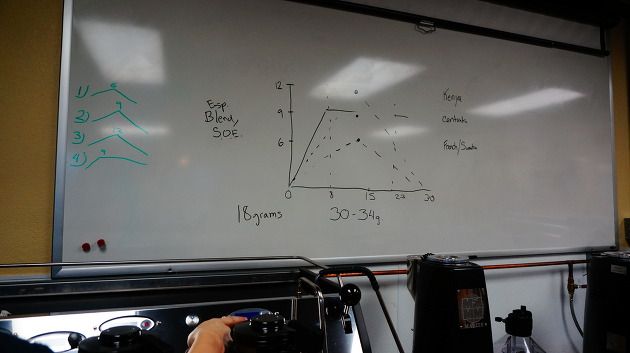 1) 6
2) 9
3) 12
4) 9
Esp.
Blend,
S.O.E.
12
9
6
0 8 15 22 30
Kenya
centrals
French/Sumatra
18grams
30-34g